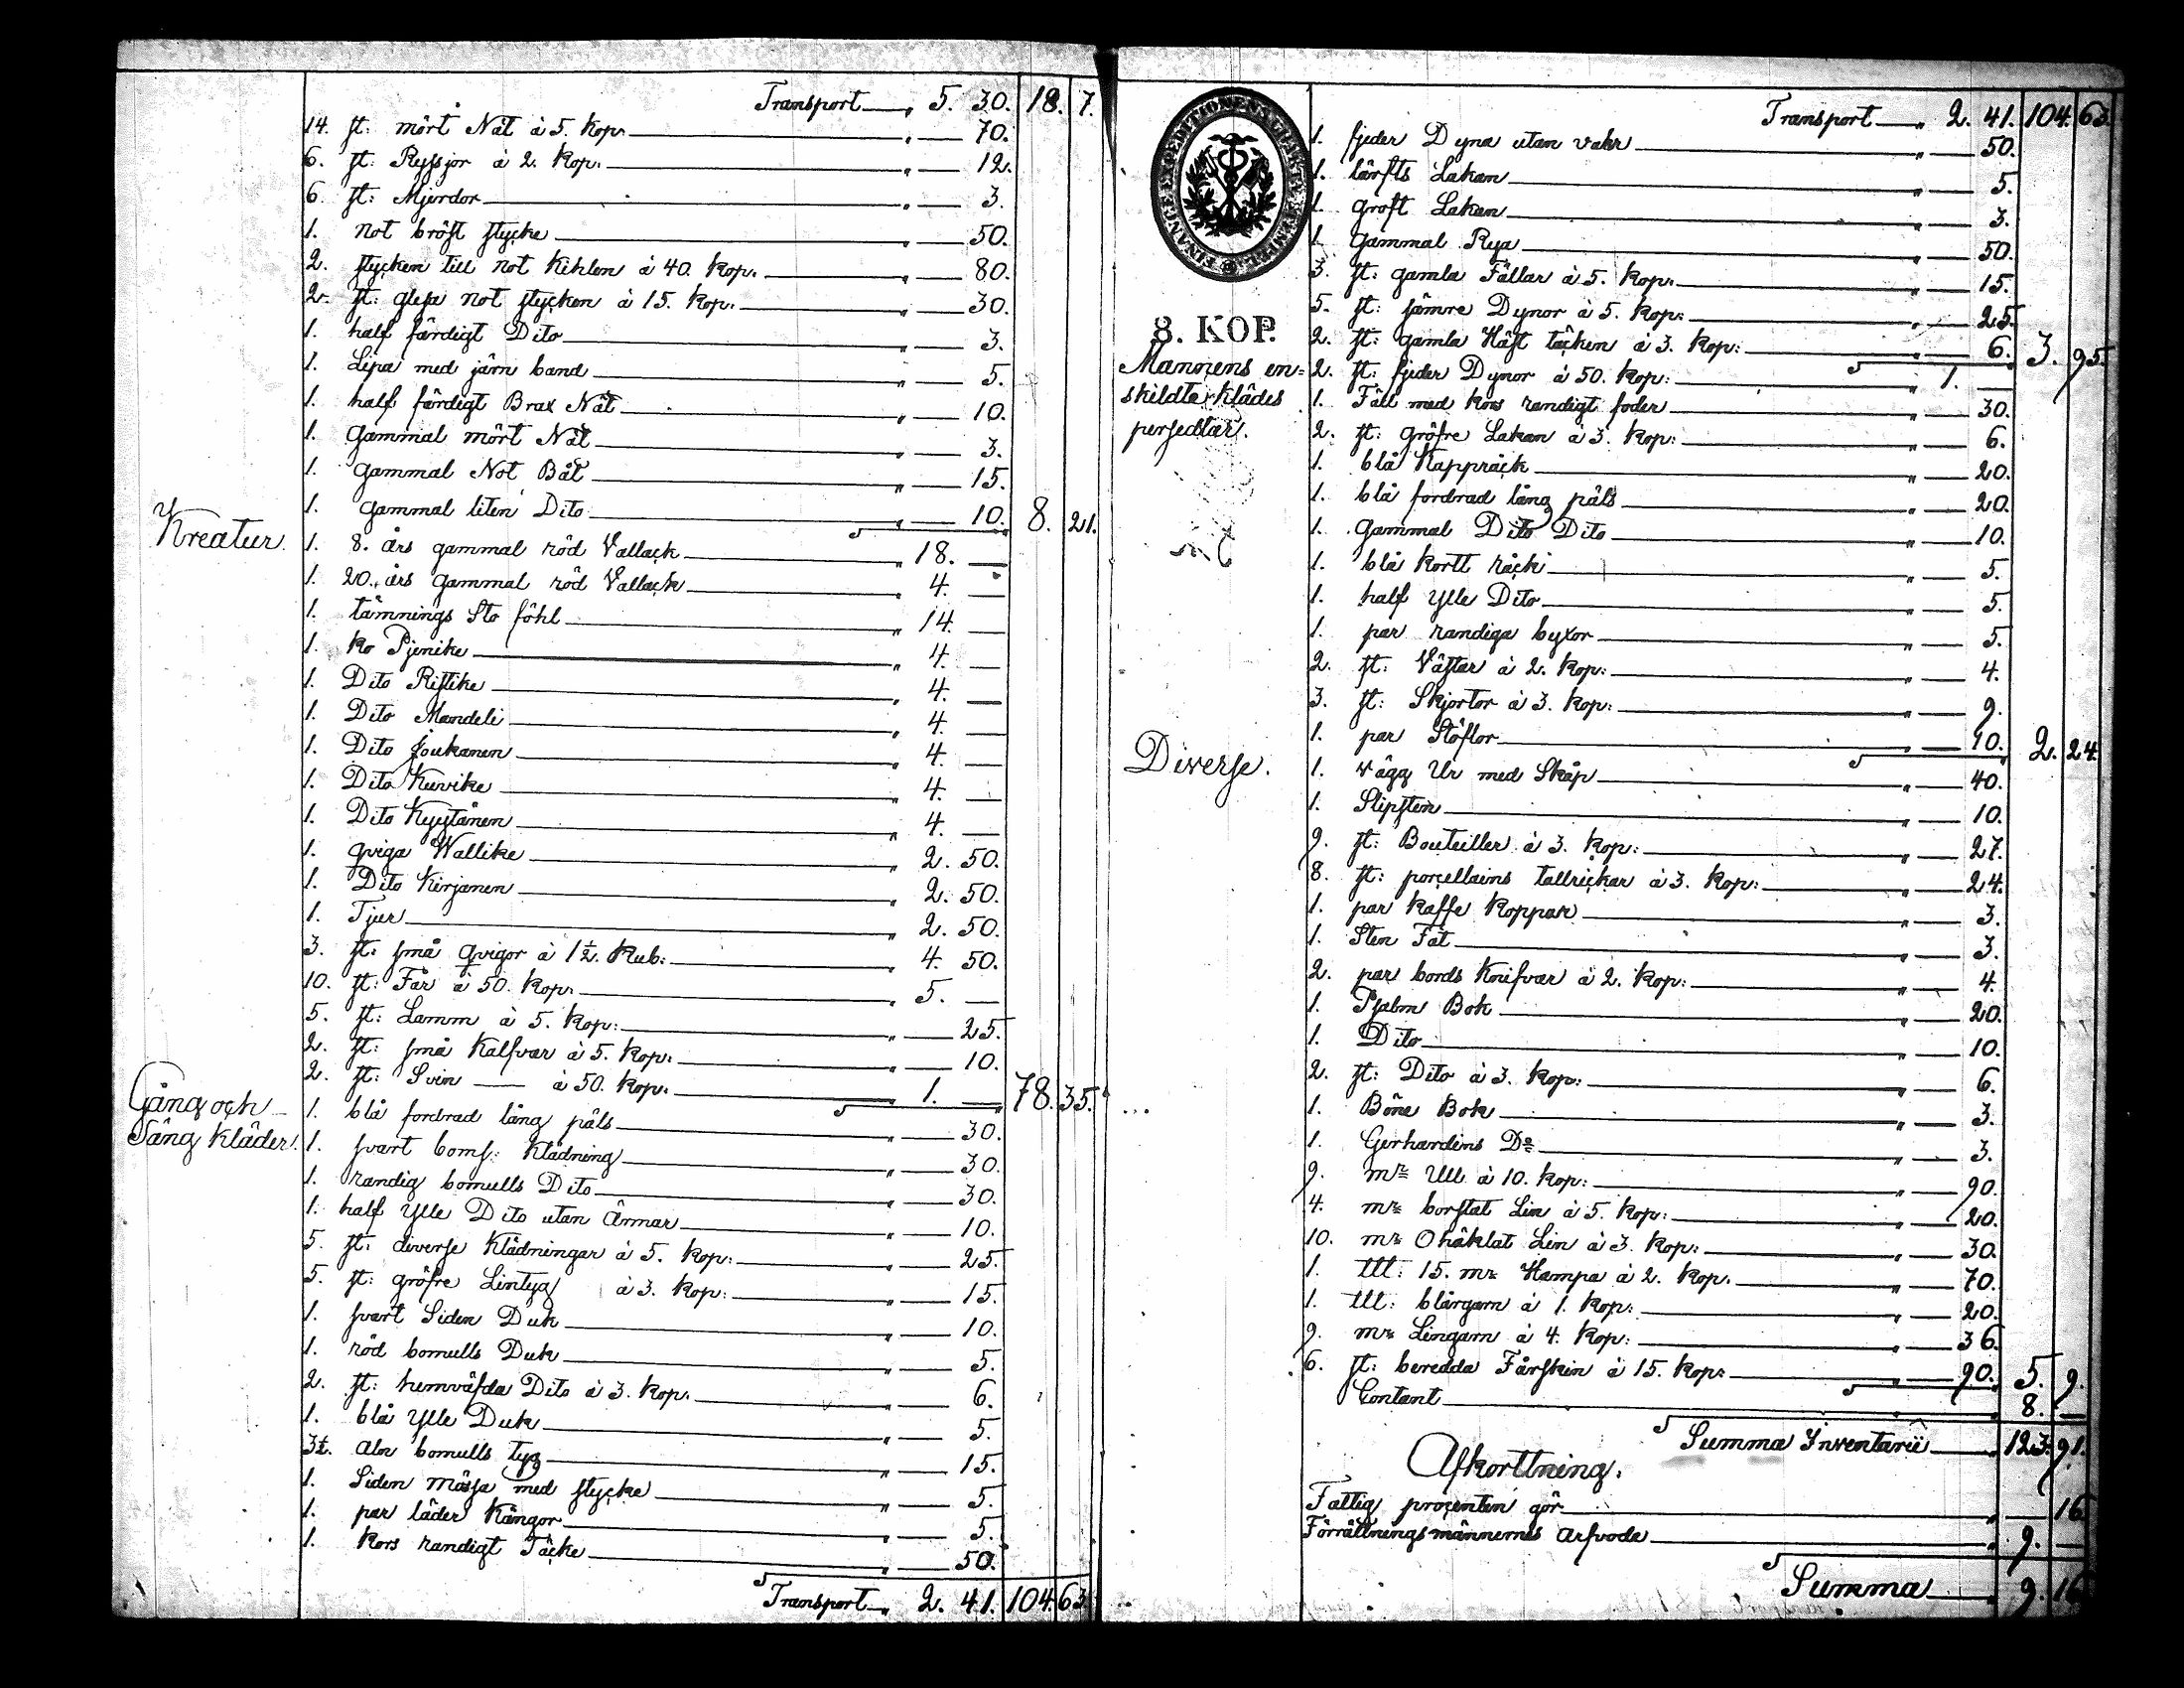 Transport — „ 5. 30. 18. 7.
14. st: mört Nät à 5. Kop: — „ — 70.
6. st: Ryssjor à 2. Kop: — „ — 12.
6. st: Mjerdor — „ — 3.
1. not bröst stycke — „ — 50.
2. stycken till not Kihlen à 40. Kop. — „ — 80.
2. st: glesa not stycken à 15. Kop. — „ — 30.
1. half färdigt Dito — „ — 3.
1. Lipa med järn band — „ — 5.
1. half färdigt Brax Nät — „ — 10.
1. Gammal mört Nät — „ — 3.
1. gammal Not Båt — „ — 15.
1. gammal liten Dito — „ — 10. 8. 21.
Kreatur. 1. 8. års gammal röd Vallack — „ 18. —
1. 20. års gammal röd Vallack — „ 4. —
1. tämnings Sto föhl — „ 14. —
1. Ko Pjenike — „ 4. —
1. Dito Ristike — „ 4. —
1. Dito Mandeli — „ 4. —
1. Dito Joukanen — „ 4. —
1. Dito Kuvike — „ 4. —
1. Dito Kyytänen — „ 4. —
1. qviga Wallike — „ 2. 50.
1. Dito Kirjanen — „ 2. 50.
1. Tjur — „ 2. 50.
3. st: små qvigor à 1½. Rub: — „ 4. 50.
10. st: Får à 50. Kop: — „ 5. —
5. st: Lamm à 5. Kop: — „ — 25.
2. st: små Kalfvar à 5. Kop: — „ — 10.
2. st: Svin — à 50. Kop. — „ 1. — 78. 35.
Gång och
Säng Kläder. 1. blå fordrad lång päls — „ — 30.
1. svart boms: Klädning — „ — 30.
1. randig bomulls Dito — „ — 30.
1. half ylle Dito utan Ärmar — „ — 10.
5. st: diverse Klädningar à 5. Kop: — „ — 25.
5. st: gröfre Lintyg à 3. Kop: — „ — 15.
1. svart Siden Duk — „ — 10.
1. röd bomulls Duk — „ — 5.
2. st: hemväfda Dito à 3. Kop. — „ — 6.
1. blå ylle Duk — „ — 5.
3½. aln bomulls tyg — „ — 15.
1. Siden mössa med stycke — „ — 5.
1. par läder Kängor — „ — 5.
1. Kors randigt Täcke — „ — 50.
Transport — „ 2. 41. 104. 63.
FINANCE EXPEDITIONENS CHARTÆ STEMPEL
8. KOP.
Transport — „ 2. 41. 104. 63.
1. fjeder Dyna utan vahr — „ — 50.
1. lärfts Lakan — „ — 5.
1. groft Lakan — „ — 3.
1. Gammal Rya — „ — 50.
3. st: gamla Fällar à 5. Kop: — „ — 15.
5. st: sämre Dynor à 5. Kop: — „ — 25.
2. st: gamla Häst täcken à 3. Kop: — „ — 6. 3. 95.
Mannens en=
skildta Klädes
persedlar. 2. st: fjeder Dynor à 50. Kop: — „ 1. —
1. Fäll med Kors randigt foder — „ — 30.
2. st: gröfre Lakan à 3. Kop: — „ — 6.
1. blå Kappräck — „ — 20.
1. blå fordrad lång päls — „ — 20.
1. Gammal Dito Dito — „ — 10.
1. blå Kortt räck — „ — 5.
1. half ylle Dito — „ — 5.
1. par randiga byxor — „ — 5.
2. st: Västar à 2. Kop: — „ — 4.
3. st: Skjortor à 3. Kop: — „ — 9.
1. par Stöflor — „ — 10. 2. 24.
Diverse. 1. vägg Ur med Skåp — „ — 40.
1. Slipsten — „ — 10.
9. st: Bouteiller à 3. Kop: — „ — 27.
8. st: porcellains tallrickar à 3. Kop: — „ — 24.
1. par kaffe Koppar — „ — 3.
1. Sten Fat — „ — 3.
2. par bords Knifvar à 2. Kop: — „ — 4.
1. Psalm Bok — „ — 20.
1. Dito — „ — 10.
2. st: Dito à 3. Kop: — „ — 6.
1. Böne Bok — „ — 3.
1. Gerhardens Do — „ — 3.
9. mr Ull à 10. Kop: — „ — 90.
4. mr borstat Lin à 5. Kop: — „ — 20.
10. mr Ohäklat Lin à 3. Kop: — „ — 30.
1. lll: 15. mr Hampa à 2. Kop. — „ — 70.
1. lll: blårgarn à 1. Kop: — „ — 20.
9. mr Lingarn à 4. Kop: — „ — 36.
6. st: beredda Fårskin à 15. Kop: — „ — 90. 5. 9.
Contant — „ 8. —
Summa Inventarii — „ 123. 91.
Afkorttning.
Fattig procenten gör — „ — 16
Förrättningsmännernes Arfvode — „ 9. —
Summa — „ 9. 16